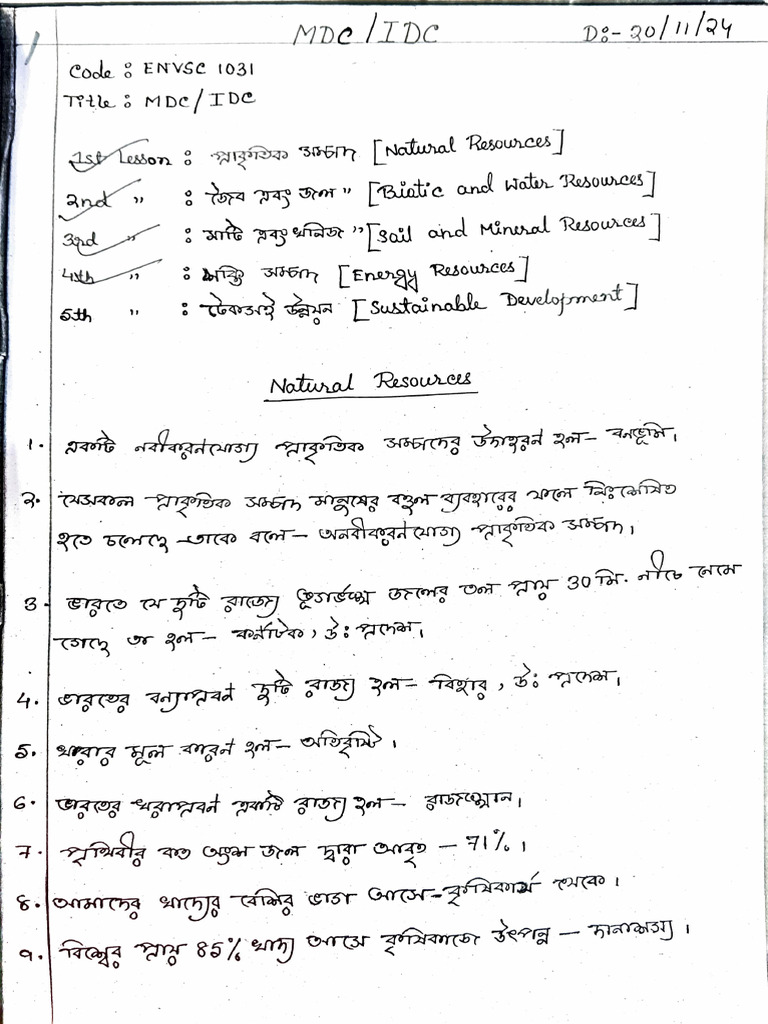 MDC/IDC D:- 20/11/24
Code : ENVSC 1031
Title : MDC/IDC
1st Lesson : প্রাকৃতিক সম্পদ [Natural Resources]
2nd " : জৈব এবং জল " [Biatic and Water Resources]
3rd " : মাটি এবং খনিজ " [Soil and Mineral Resources]
4th " : শক্তি সম্পদ [Energy Resources]
5th " : টেকসই উন্নয়ন [Sustainable Development]
Natural Resources
1. একটি নবীকরনযোগ্য প্রাকৃতিক সম্পদের উদাহরন হল- বনভূমি।
2. যেসকল প্রাকৃতিক সম্পদ মানুষের বহুল ব্যবহারের ফলে নিঃশেষিত
হতে চলেছে তাকে বলে- অনবীকরনযোগ্য প্রাকৃতিক সম্পদ।
3. ভারতে যে দুটি রাজ্যে ভূগর্ভস্থ জলের তল প্রায় 30 মি. নীচে নেমে
গেছে তা হল- কর্নাটক, উঃ প্রদেশ।
4. ভারতের বন্যাপ্রবন দুটি রাজ্য হল- বিহার, উঃ প্রদেশ।
5. খরার মূল কারন হল- অতিবৃষ্টি।
6. ভারতের খরাপ্রবন একটি রাজ্য হল- রাজস্থান।
7. পৃথিবীর কত অংশ জল দ্বারা আবৃত - 71%।
8. আমাদের খাদ্যের বেশির ভাগ আসে- কৃষিকার্য থেকে।
9. বিশ্বের প্রায় 85% খাদ্য আসে কৃষিকাজে উৎপন্ন - দানাশস্য।